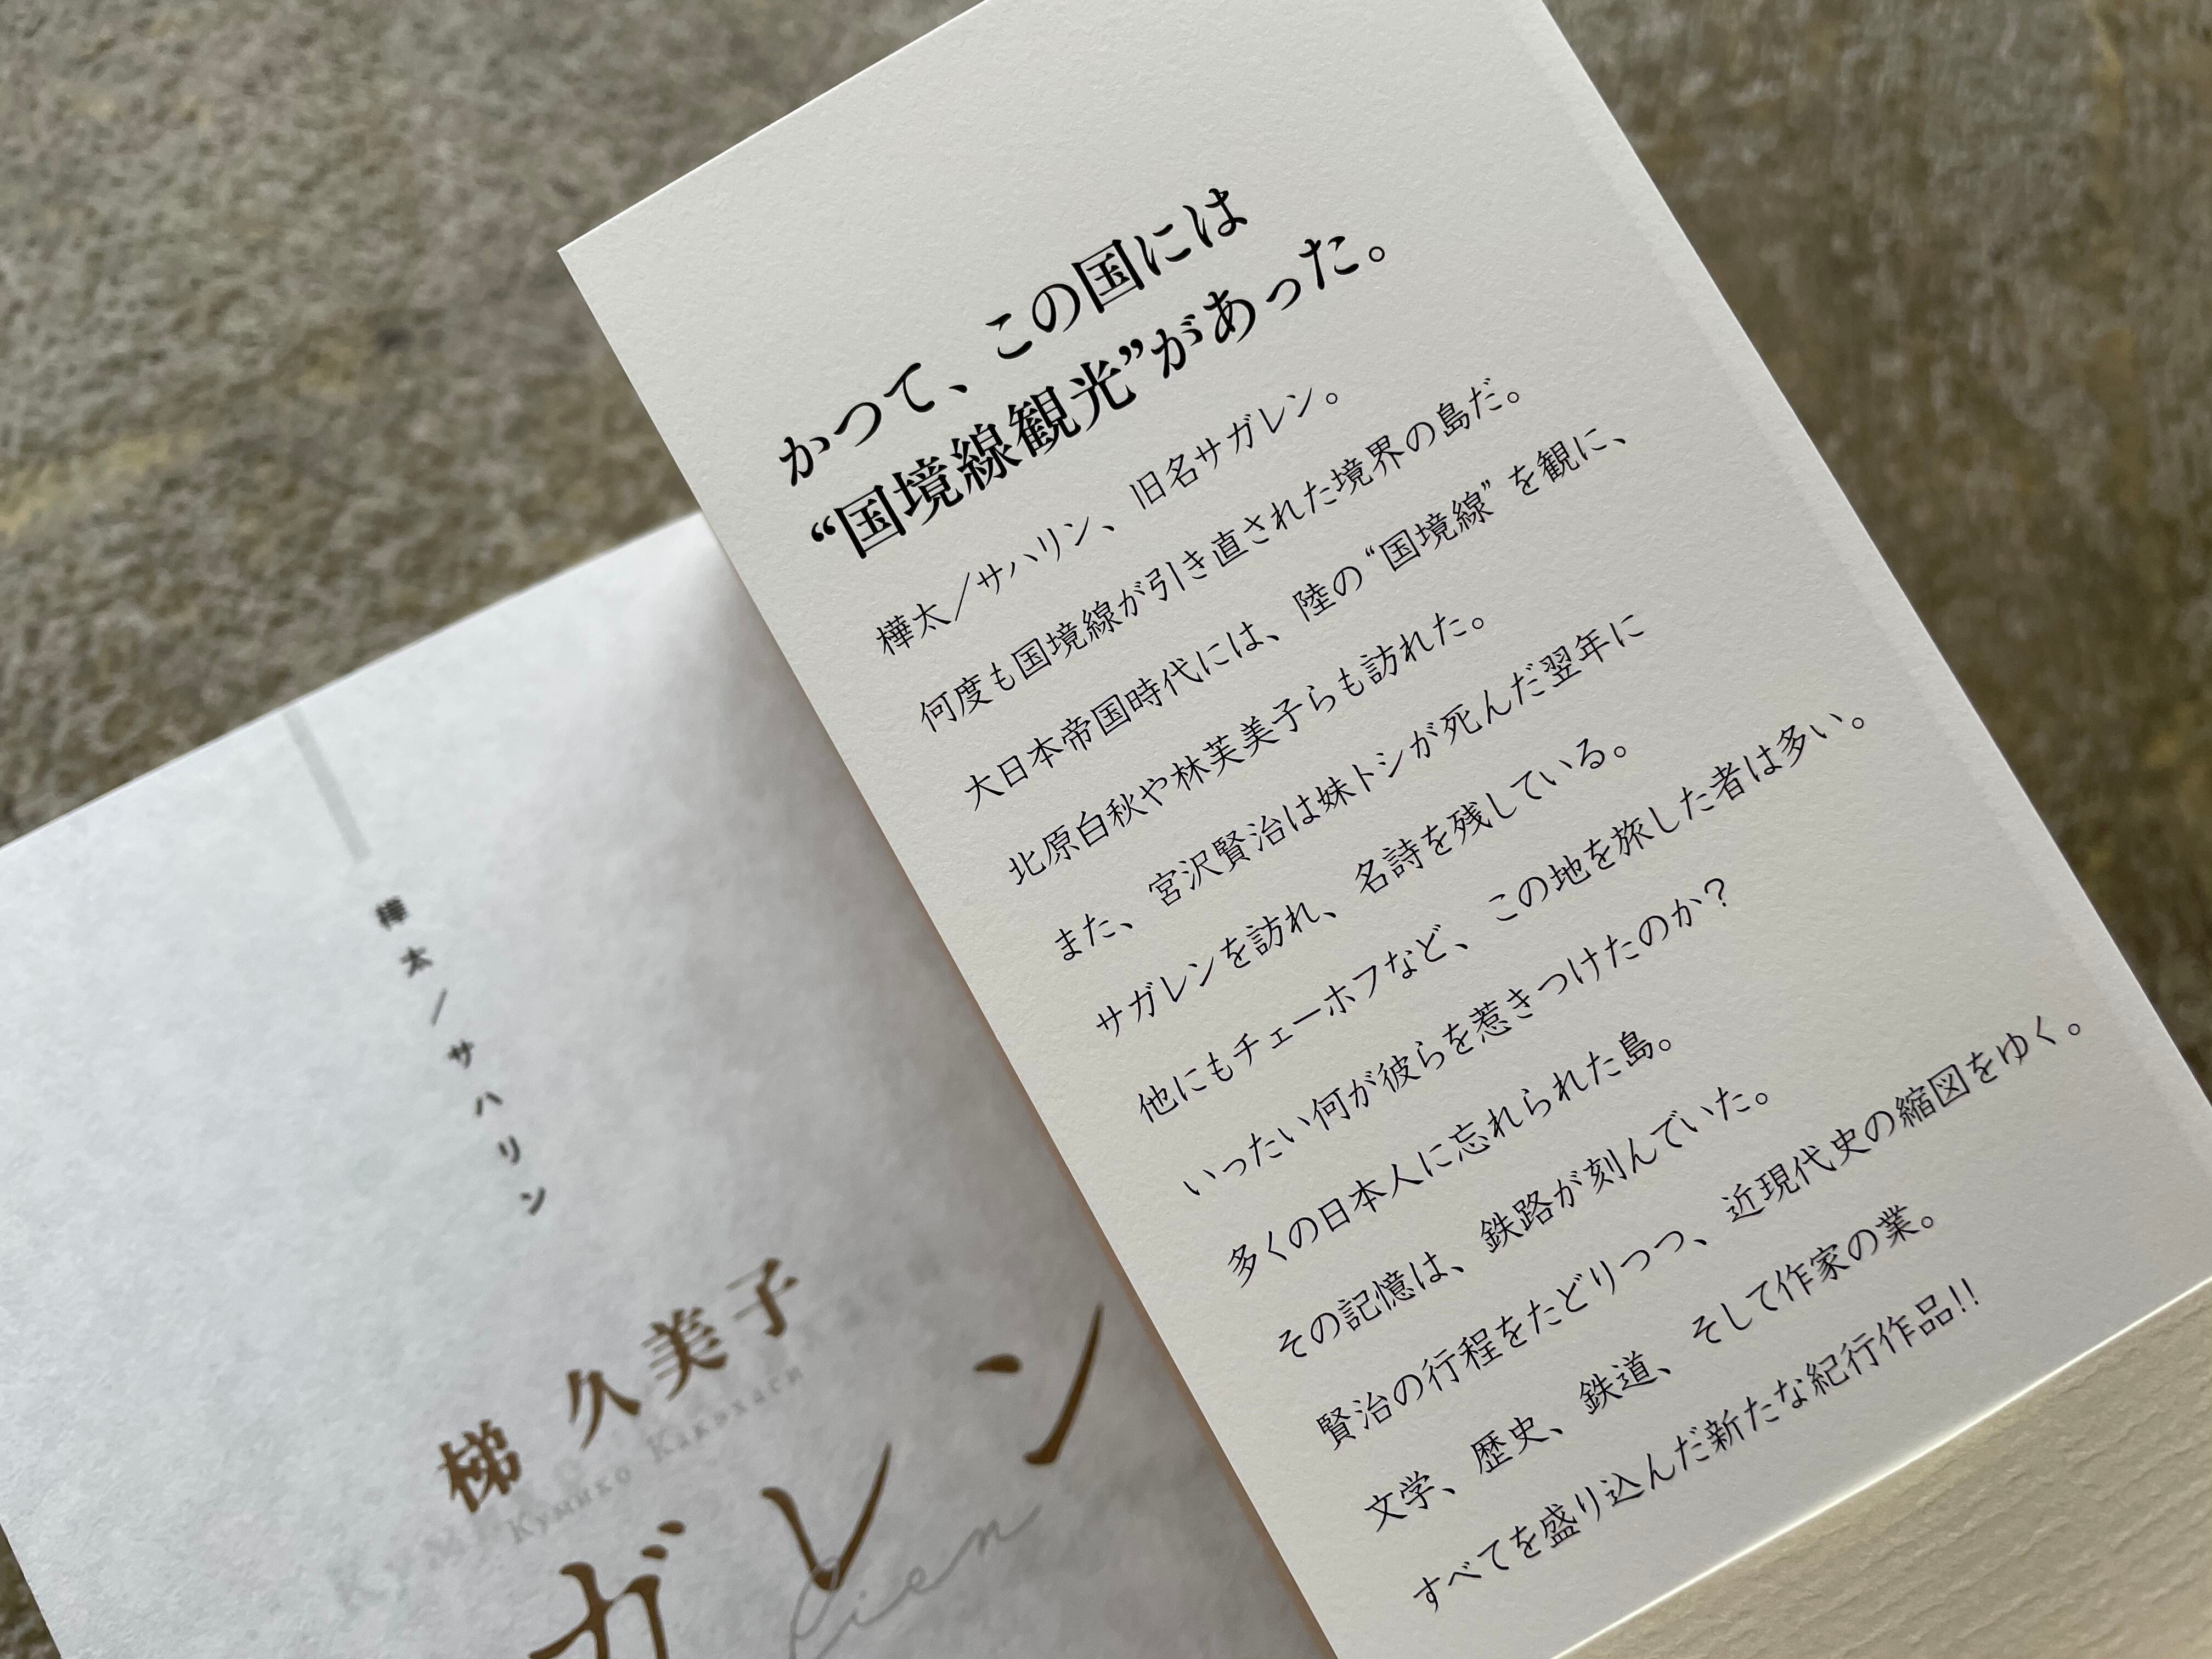 かつて、この国には
“国境線観光”があった。
樺太／サハリン、旧名サガレン。
何度も国境線が引き直された境界の島だ。
大日本帝国時代には、陸の“国境線”を観に、
北原白秋や林芙美子らも訪れた。
また、宮沢賢治は妹トシが死んだ翌年に
サガレンを訪れ、名詩を残している。
他にもチェーホフなど、この地を旅した者は多い。
いったい何が彼らを惹きつけたのか？
多くの日本人に忘れられた島。
その記憶は、鉄路が刻んでいた。
賢治の行程をたどりつつ、近現代史の縮図をゆく。
文学、歴史、鉄道、そして作家の業。
すべてを盛り込んだ新たな紀行作品!!
樺太／サハリン
梯 久美子
Кумико Какэхаси
ガレン
lien